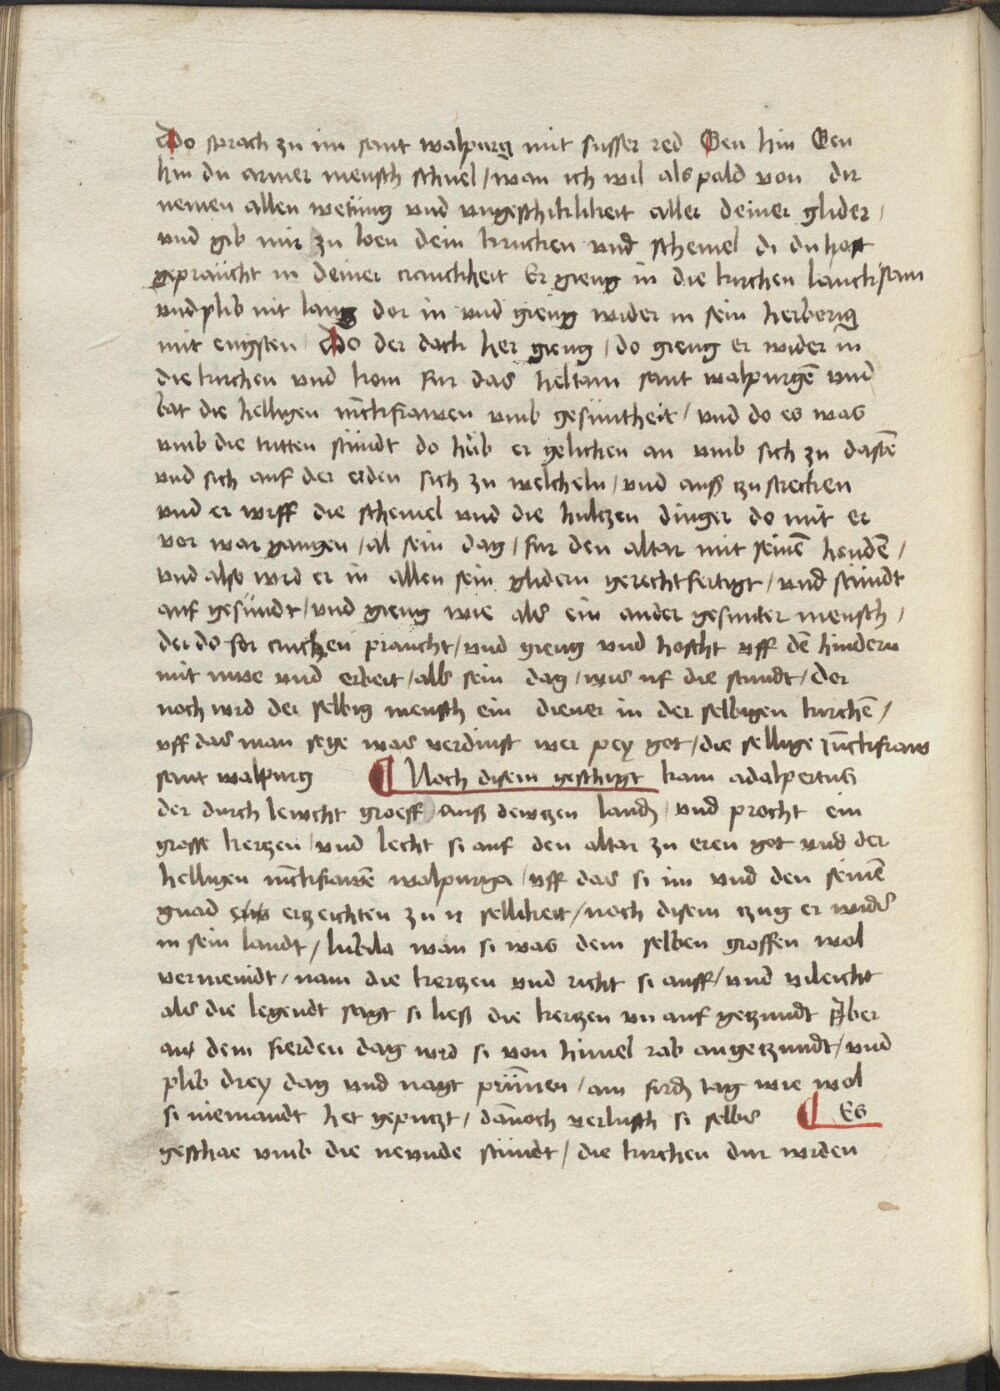 Do sprach zu im sant walpurg mit susser red Gen hin Gen
hin du armer mensch schnel / wan ich wil als pald von dir
nemen allen wetung vnd vngeschiklikeit aller deiner glider /
vnd gib mir zu loen dein krucken vnd schemel di du hast
gepraucht in deiner kranckheit Er gieng in die kirchen lancksam
vnd plib nit lang dor in vnd gieng wider in sein herberig
mit engsten Do der dack her gieng / do gieng er wider in
die kirchen vnd kom fur das heltam sant walpurgē vnd
bat die helligen iūckfrawen vmb gesuntheit / vnd do es was
vmb die tritten stundt do hub er gelichen an vmb sich zu dastē
vnd sich auf der erden sich zu welcheln / vnd auß zu strecken
vnd er wrff die schemel vnd die hultzen dinger do mit er
vor war gangen / al sein dag / fur den altar mit seinē hendē /
vnd also wrd er in allen sein glidern gerechtfertigt / vnd stundt
auf gesundt / vnd gieng wie als ein ander gesunter mensch /
der do for crucken praucht / vnd gieng vnd hoscht vff dē hindern
mit mue vnd erbeit / alls sein dag / wis uf die stundt / der
noch wrd der selbig mensch ein diener in der selbigen kirchē /
vff das man sege was verdinst wer pey got / die sellige iūckfraw
sant walpurg ¶ Noch disem geschigt kam adalpertus
der durch lewcht groeff auß dewtzen landen vnd procht ein
grosse kertzen vnd lecht si auf den altar zu eren got vnd der
helligen iūckfrawē walpurga / vff das si im vnd den seinē
gnad erzeichten zu ir sellikeit / noch disem tzug er wider
in sein landt / lubila wan si was dem selben groffen wol
vermeindt / nam die kertzen vnd richt si auff / vnd vileicht
als die legendt sagt si ließ die kertzen vn auf getzundt aber
an dem fierden dag wrd si von himel rab angetzundt / vnd
plib drey dag vnd nagt prinnen / am fird tag wie wol
si niemandt het geputzt / dānoch verlusch si selbs ¶ Es
geschae vmb die newnde stundt / die kirchen dur wrden